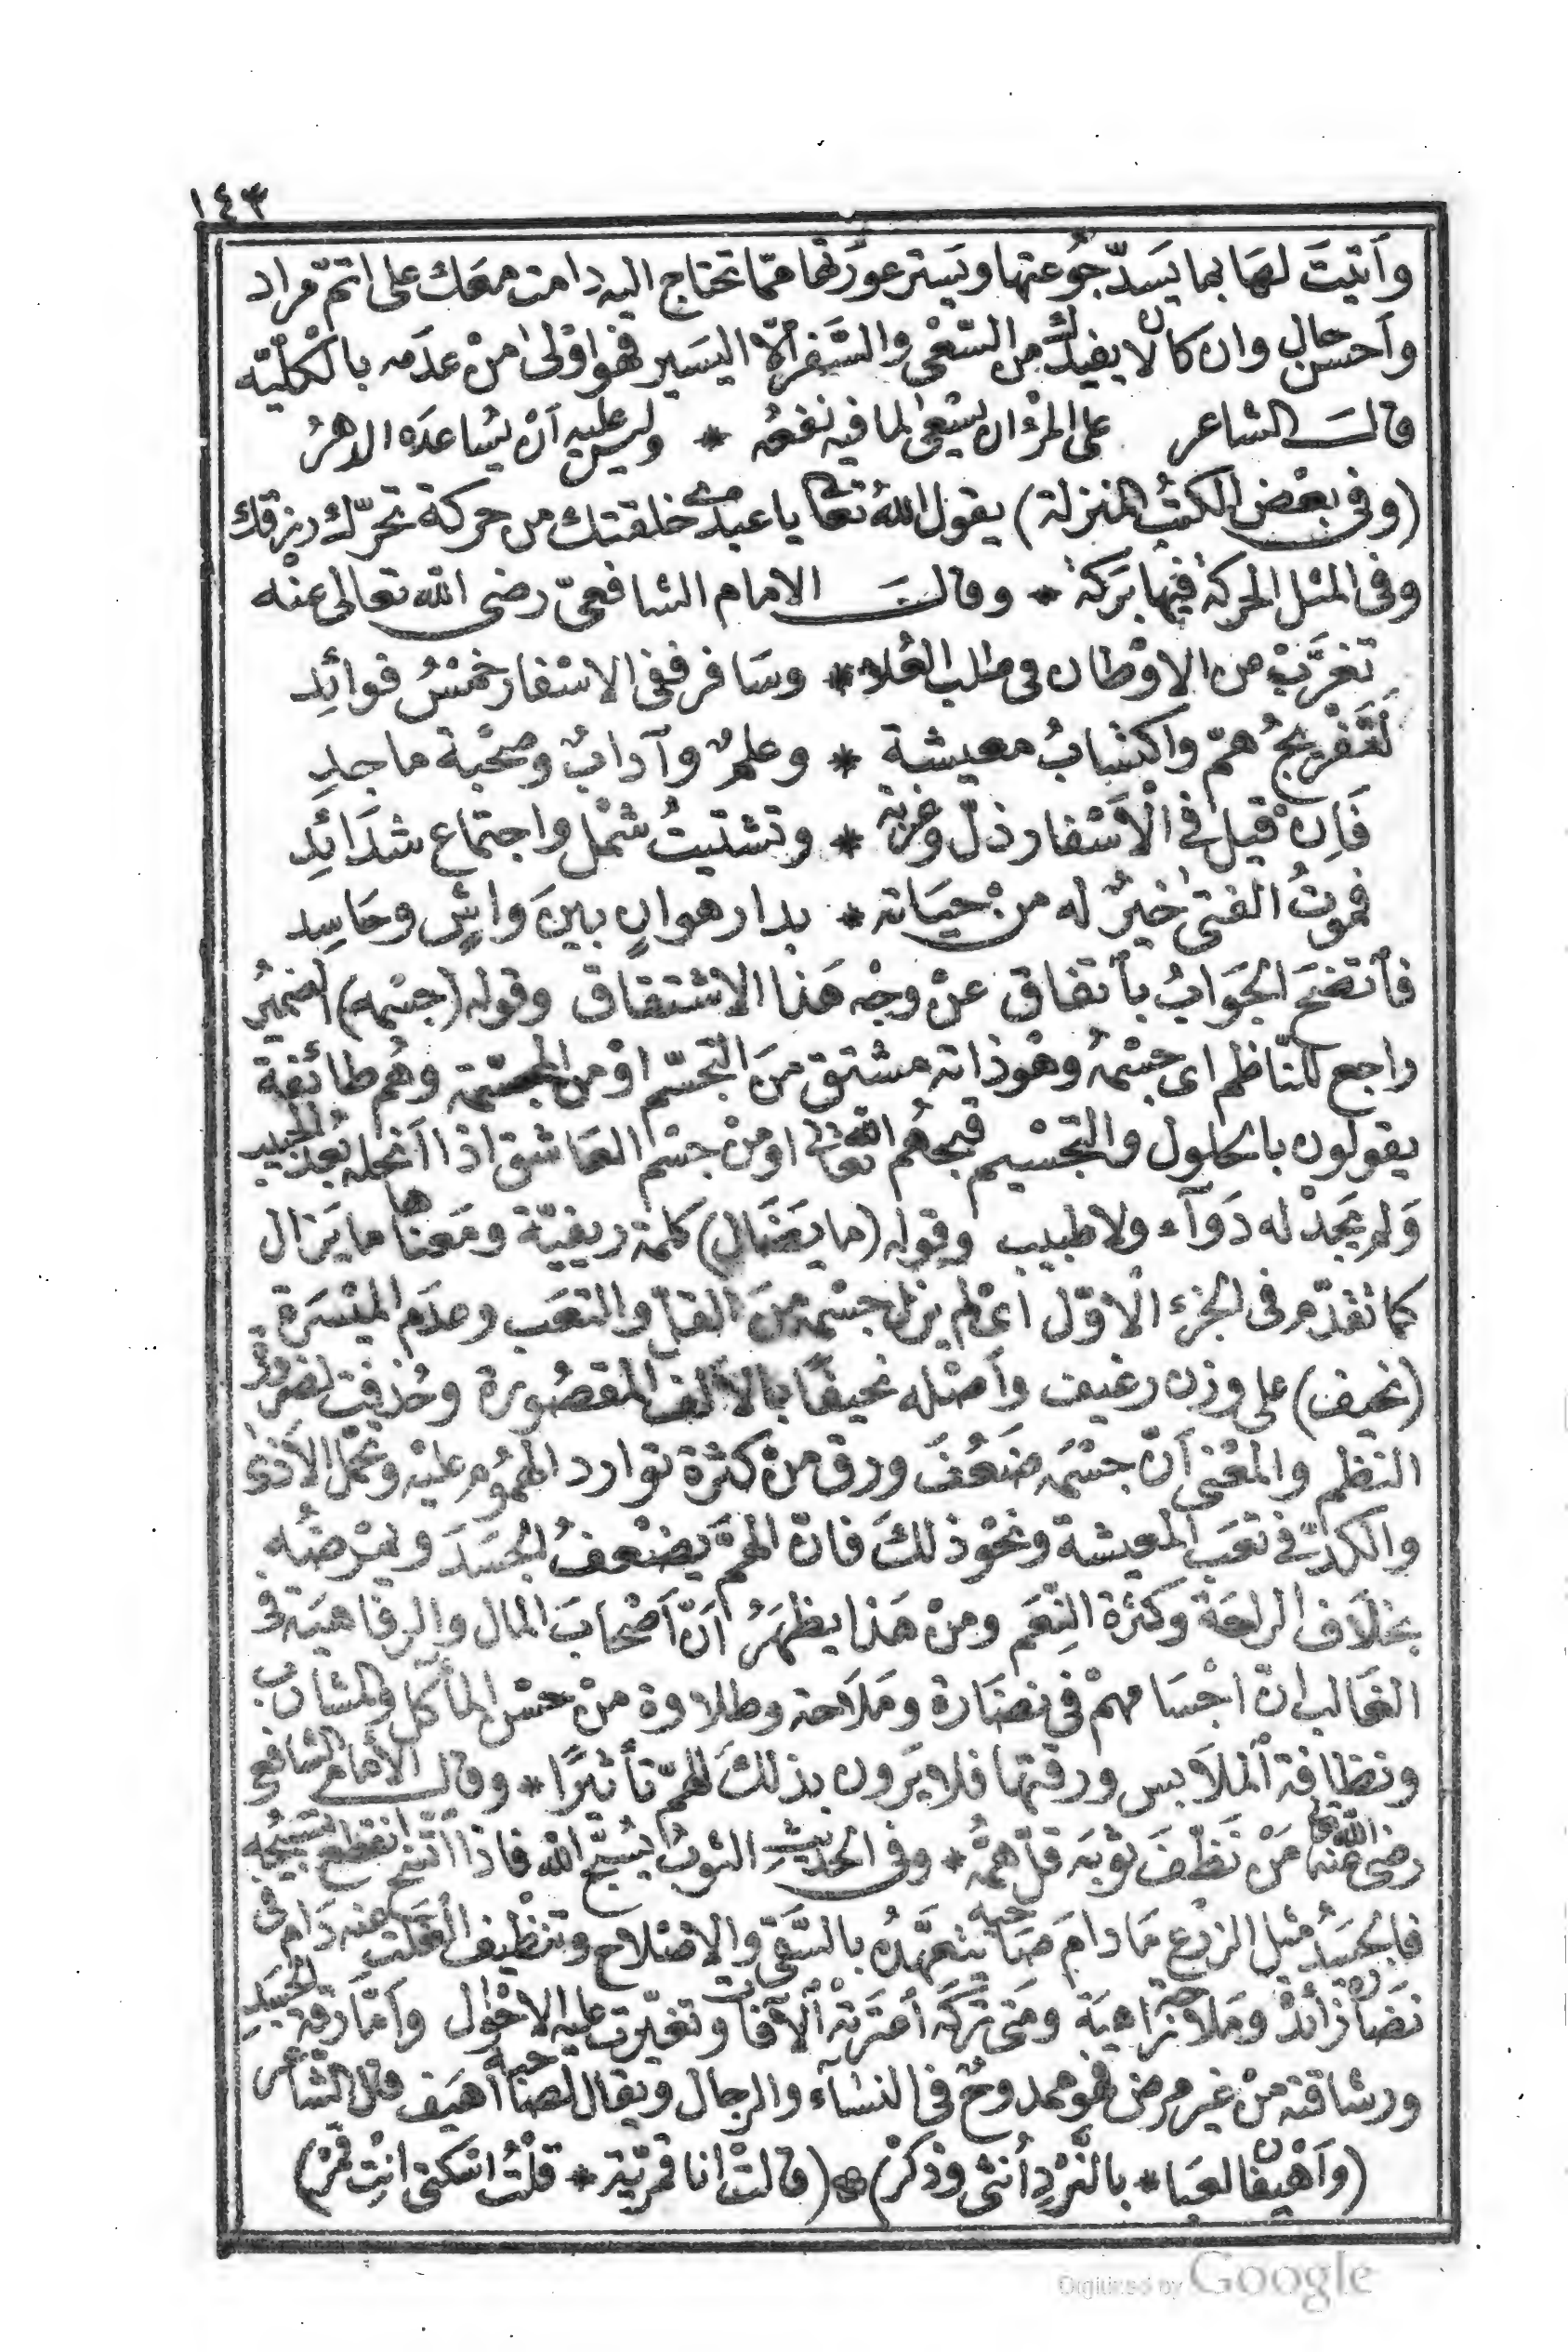 ١٤٣
وأتيتَ لهَا بما يسَدّ جُوعتها ويَستر عورَتها ممّا تحتاج اليه دامت معَك على اتمّ مراد
وأحسن حال وان كان لا يفيدك من السّعْى والسَّفر إلّا اليسَير فهو اوْلى منْ عدَمه بالكُلّيّه
قالَ الشاعر على المرْء ان يسْعى لما فيه نفعُه * وليس عليه أنْ يُساعدَه الدهرُ
(وفى بعْض الكتبُ المنزلة) يقول اللهُ تعالى يا عبدى خلقتك من حركة تحرّك برزقك
وفى المثل الحركةُ فيهَا بَركةٌ * وقالَ الامام الشافعىّ رضى الله تعالى عنْه
تغرَّبْ من الاوْطان فى طلب العُلا * وسَافر ففى الاسْفار خمْسُ فوائِد
تَفْريجُ همّ واكتسابُ معيشة * وعلمٌ وآدابٌ وصُحْبة ماجدِ
فَإِن قيل فى الْأسْفار ذلّ وغربة * وتشتيتُ شمْل واجتماع شدَائِد
فموتُ الفتى خيرٌ له منْ حيَاته * بدار هوانٍ بينَ واشٍ وحَاسِد
فأتضحَ الجَوابُ بأتفاق عنْ وجْه هَذا الاشتقاق وقوله (جسْمه) الضميُر
راجع للنّاظم اى جسْمهُ وهْو ذاته مشتق منَ التّجسّم اوْ من المجسّمة وهُم طائفة
يقولون بالحلول والتّجسْيم قبحهُم اللهُ تعالى اومنْ جسْم العَاشق اذا أنحله بُعد الحَبيب
وَلم يجَدْ له دَوآء ولا طبيب وقوله (ما يضَال) كلمة ريفيّة ومَعناها ما يَزال
كما تقدّم فى الجزء الْاوّل أعْلم يزل جسْمه منَ القلّ والتعَب وعدَم الميْسَرة
(نحيف) على وزن رغيف وأصْله نحيفًا بالألف المقصُورة وحُذفت لضرورة
النظم والمعْنى أنّ جسْمَه ضَعُفَ ورق منْ كثرة توارد الهمُوم عليْه وتحمّل الأذى
والكدّ فى تعَب المعيشة ونحْو ذلكَ فانّ الهمَّ يَضْعفُ الجَسَدَ ويمْرضُه
بخلَاف الراحَة وكثرة النِعَم ومنْ هَذا يظهَرُ أنّ أصْحابَ المال والرفاهيَة فى
الغَالب انّ اجْسَامهمْ فى نضَارة ومَلاحة وطلاوة منْ حسْن المأكل والمشارب
ونظافة الْملابس ورقتها فلا يَرون بذلكَ للهمّ تأثيرًا * وقال الأمام الشافعى
رضى الله عنه مَنْ نَظّفَ ثوْبَه قلّ همُّه * وفى الحديثِ الثوبُ يُسبّح الله فاذا اتّسَخ انقطع تسبيحُه
فالجَسَدُ مثل الزرْع مَا دامَ صَاحبه يتعهَّدُه بالسَّقى والاصْلاح وتنْظيف الْغلت عنه دَام فى
نضَارة زائدْة ومَلاحة زاهيَة ومَتى تركَه أعترَتهْ الآفات وتغيّرت عليه الاحْوال وأمّا رقة الجَسَدِ
ورشاقته منْ غير مرض فهو ممدوحٌ فى النسَآء والرجال ويقال لصَاحبه أهيَف قال الشّاعر
(وَأهْيفان لعبَا * بالنَّرْدِ أنثى وذكرْ) (قالتْ انا قمْريّة * قلتُ اسْكتى انتِ قمَرْ)
Digitized by Google